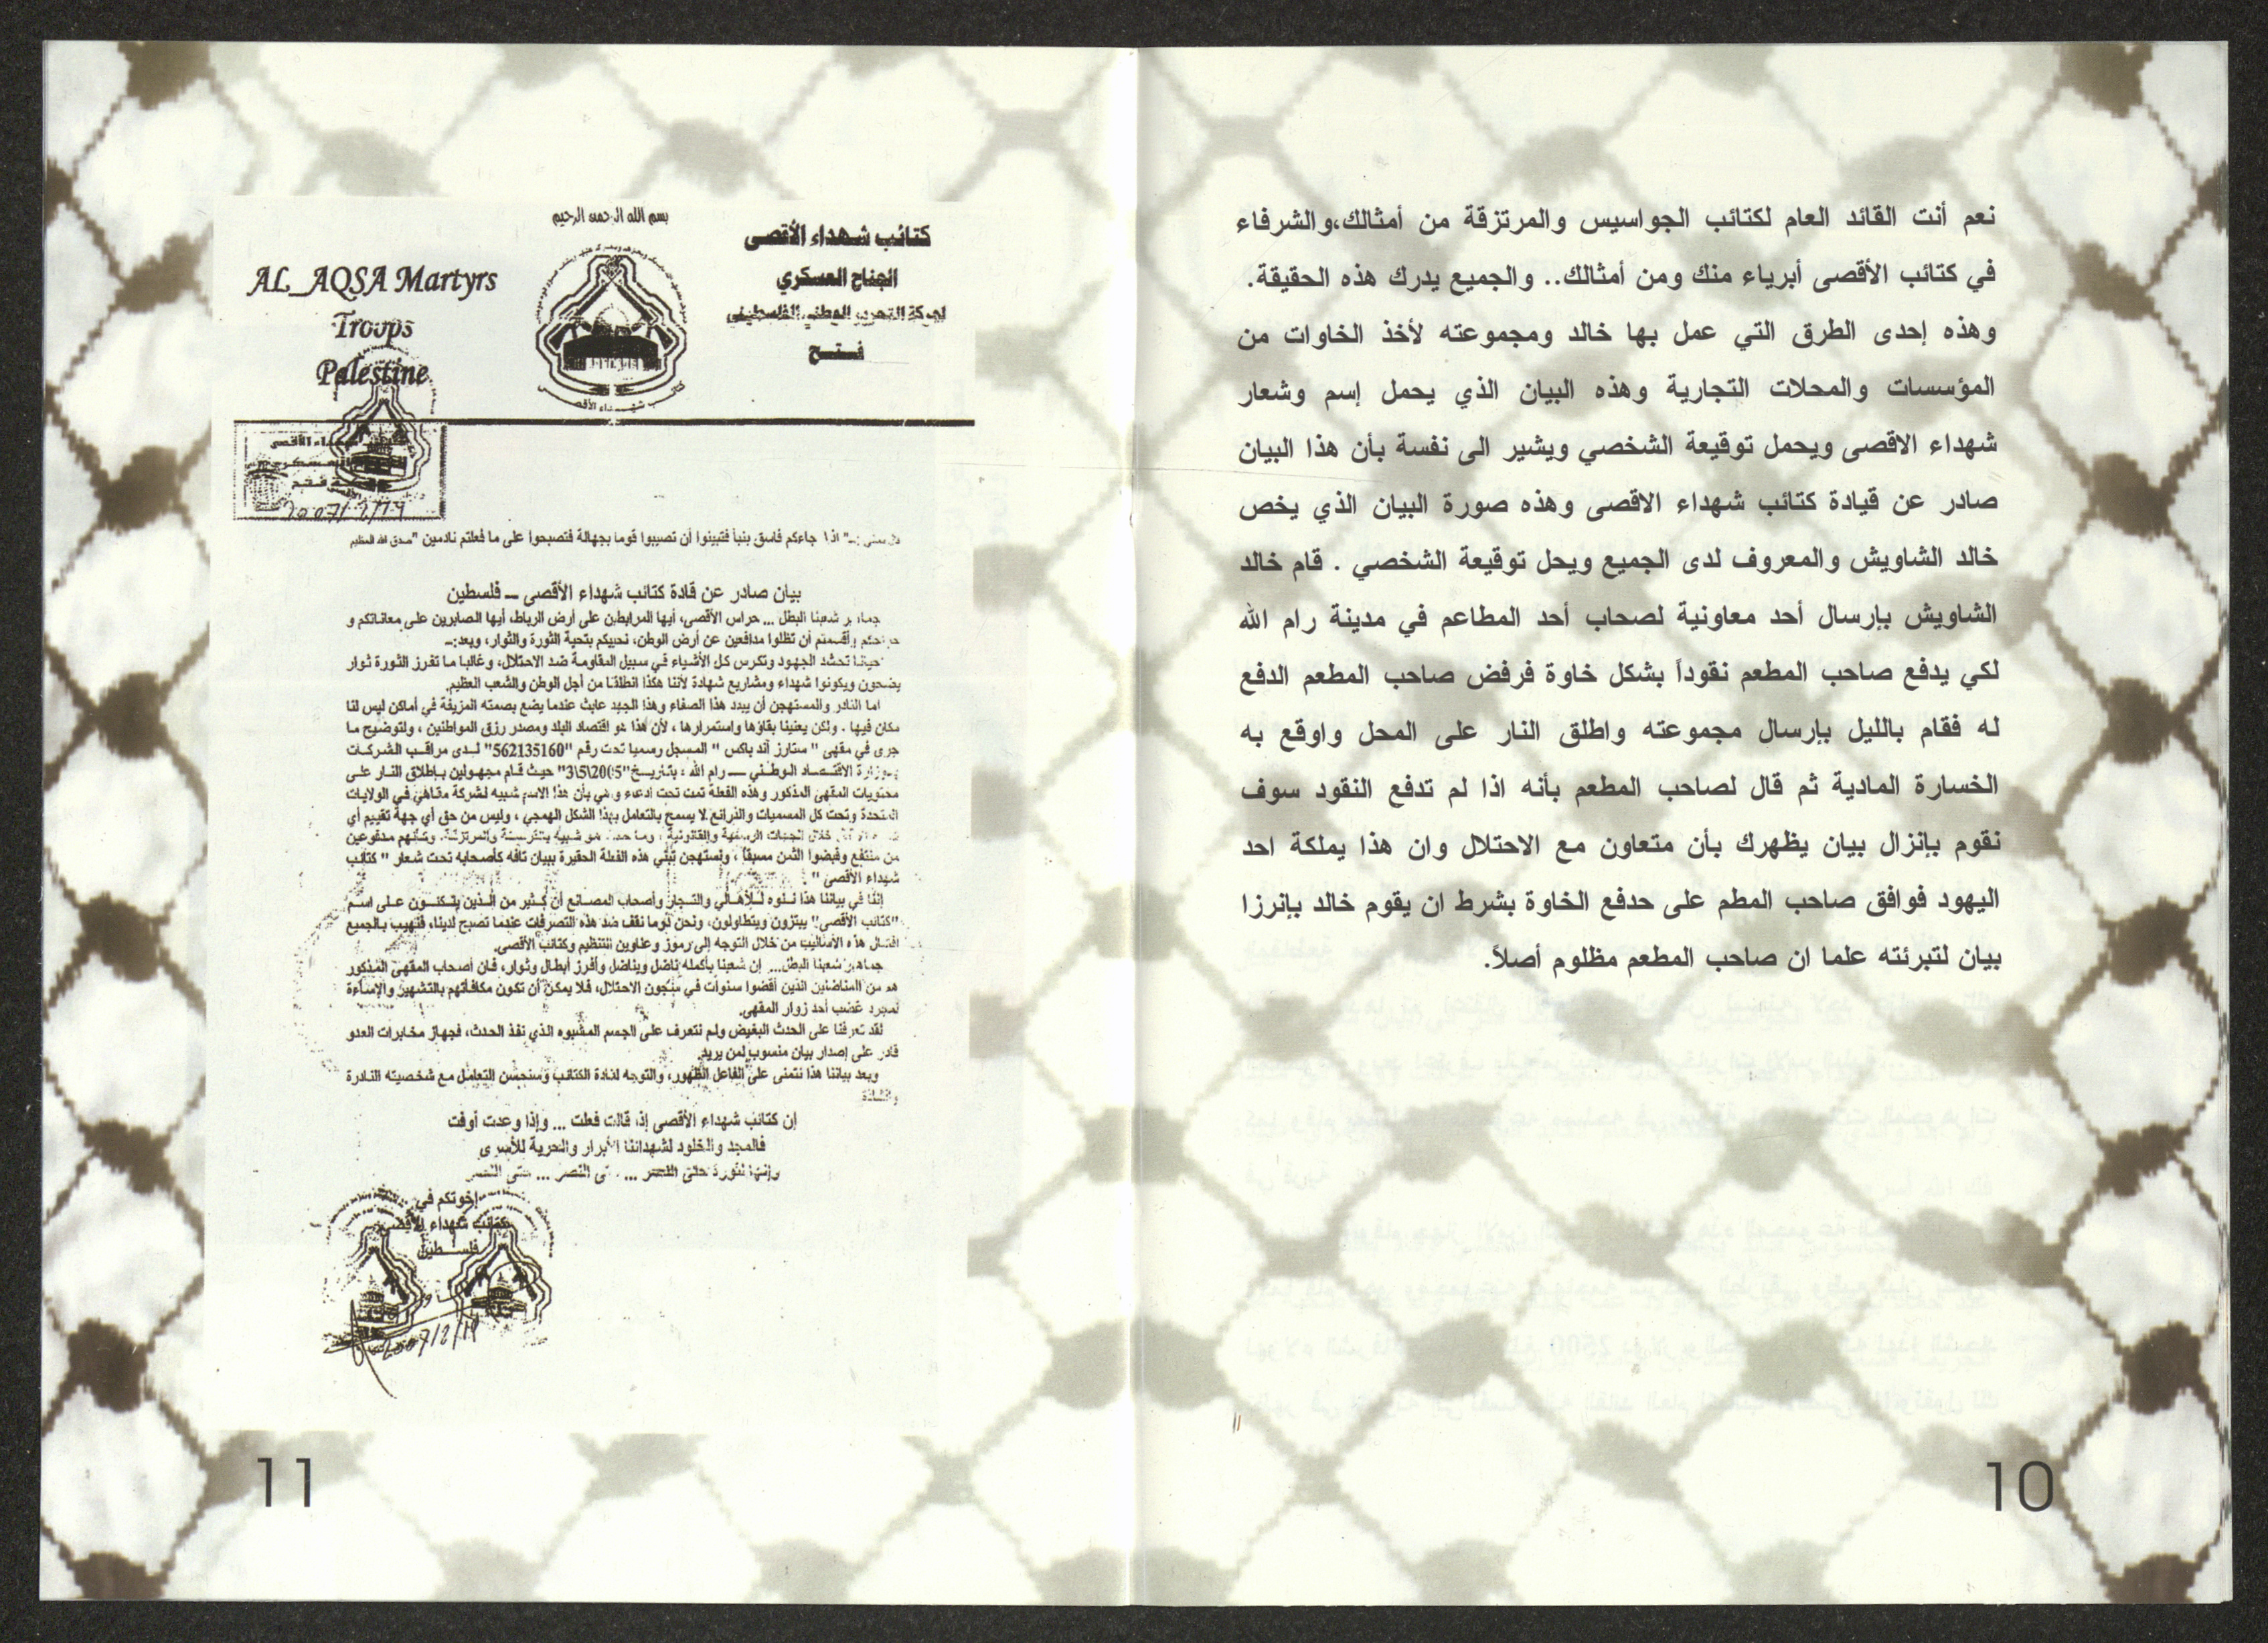 نعم أنت القائد العام لكتائب الجواسيس والمرتزقة من أمثالك،والشرفاء
في كتائب الأقصى أبرياء منك ومن أمثالك.. والجميع يدرك هذه الحقيقة.
وهذه إحدى الطرق التي عمل بها خالد ومجموعته لأخذ الخاوات من
المؤسسات والمحلات التجارية وهذه البيان الذي يحمل إسم وشعار
شهداء الاقصى ويحمل توقيعة الشخصي ويشير الى نفسة بأن هذا البيان
صادر عن قيادة كتائب شهداء الاقصى وهذه صورة البيان الذي يخص
خالد الشاويش والمعروف لدى الجميع ويحل توقيعة الشخصي . قام خالد
الشاويش بإرسال أحد معاونية لصحاب أحد المطاعم في مدينة رام الله
لكي يدفع صاحب المطعم نقوداً بشكل خاوة فرفض صاحب المطعم الدفع
له فقام بالليل بإرسال مجموعته واطلق النار على المحل واوقع به
الخسارة المادية ثم قال لصاحب المطعم بأنه اذا لم تدفع النقود سوف
نقوم بإنزال بيان يظهرك بأن متعاون مع الاحتلال وان هذا يملكة احد
اليهود فوافق صاحب المطم على حدفع الخاوة بشرط ان يقوم خالد بإنرزا
بيان لتبرئته علما ان صاحب المطعم مظلوم أصلاً.
10
بسم الله الرحمن الرحيم
كتائب شهداء الأقصى
الجناح العسكري
لحركة التحرير الوطني الفلسطيني
فـتـح
AL_AQSA Martyrs
Troops
Palestine
2007/2/19
"اذا جاءكم فاسق بنبأ فتبينوا أن تصيبوا قوما بجهالة فتصبحوا على ما فعلتم نادمين" صدق الله العظيم
بيان صادر عن قادة كتائب شهداء الأقصى – فلسطين
جماهير شعبنا البطل ... حراس الأقصى، أيها المرابطين على أرض الرباط، أيها الصابرين على معاناتكم و
جراحكم وأقسمتم أن تظلوا مدافعين عن أرض الوطن، نحييكم بتحية الثورة والثوار، وبعد:–
حيثما تحشد الجهود وتكرس كل الأشياء في سبيل المقاومة ضد الاحتلال، وغالبا ما تفرز الثورة ثوار
يضحون ويكونوا شهداء ومشاريع شهادة لأننا هكذا انطلقنا من أجل الوطن والشعب العظيم.
اما النادر والمستهجن أن يبدد هذا الصفاء وهذا الجهد عابث عندما يضع بصمته المزيفة في أماكن ليس لنا
مكان فيها . ولكن يعنينا بقاؤها واستمرارها ، لأن هذا هو اقتصاد البلد ومصدر رزق المواطنين ، ولتوضيح ما
جرى في مقهى " ستارز أند باكس " المسجل رسميا تحت رقم "562135160" لدى مراقب الشركات
بوزارة الاقتصاد الوطني – رام الله ، بتاريخ "3\5\2005" حيث قام مجهولين بإطلاق النار على
محتويات المقهى المذكور وهذه الفعلة تمت تحت ادعاء وهي بأن هذا الاسم شبيه لشركة مقاهي في الولايات
المتحدة وتحت كل المسميات والذرائع لا يسمح بالتعامل بهذا الشكل الهمجي ، وليس من حق أي جهة تقييم أي
خلال الجهات الرسمية والقانونية ، وما حصل هو شبيه بالقرصنة والمرتزقة، وكأنهم مدفوعين
من منتفع وقبضوا الثمن مسبقا ، ونستهجن تبني هذه الفعلة الحقيرة ببيان تافه كأصحابه تحت شعار " كتائب
شهداء الأقصى " .
إننا في بياننا هذا ننوه للأهالي والتجار وأصحاب المصانع أن كثير من الذين يتكنون على اسم
"كتائب الأقصى" يبتزون ويتطاولون، ونحن يوما نقف ضد هذه التصرفات عندما تصبح لدينا، فنهيب بالجميع
افشال هذه الأساليب من خلال التوجه إلى رموز وعناوين التنظيم وكتائب الأقصى.
جماهير شعبنا البطل... إن شعبنا بأكمله ناضل ويناضل وأفرز أبطال وثوار، فان أصحاب المقهى المذكور
هم من المناضلين الذين أقضوا سنوات في سجون الاحتلال، فلا يمكن أن تكون مكافأتهم بالتشهير والإساءة
لمجرد غضب أحد زوار المقهى.
لقد تعرفنا على الحدث البغيض ولم نتعرف على الجسم المشبوه الذي نفذ الحدث، فجهاز مخابرات العدو
قادر على إصدار بيان منسوب لمن يريد.
وبعد بياننا هذا نتمنى على الفاعل الظهور، والتوجه لقادة الكتائب وسنحسن التعامل مع شخصيته النادرة
إن كتائب شهداء الأقصى إذ قالت فعلت ... وإذا وعدت أوفت
فالمجد والخلود لشهدائنا الأبرار والحرية للأسرى
وإنها لثورة حتى النصر ... حتى النصر ... حتى النصر
إخوتكم في
كتائب شهداء الأقصى
فلسطين
2007/2/19
11